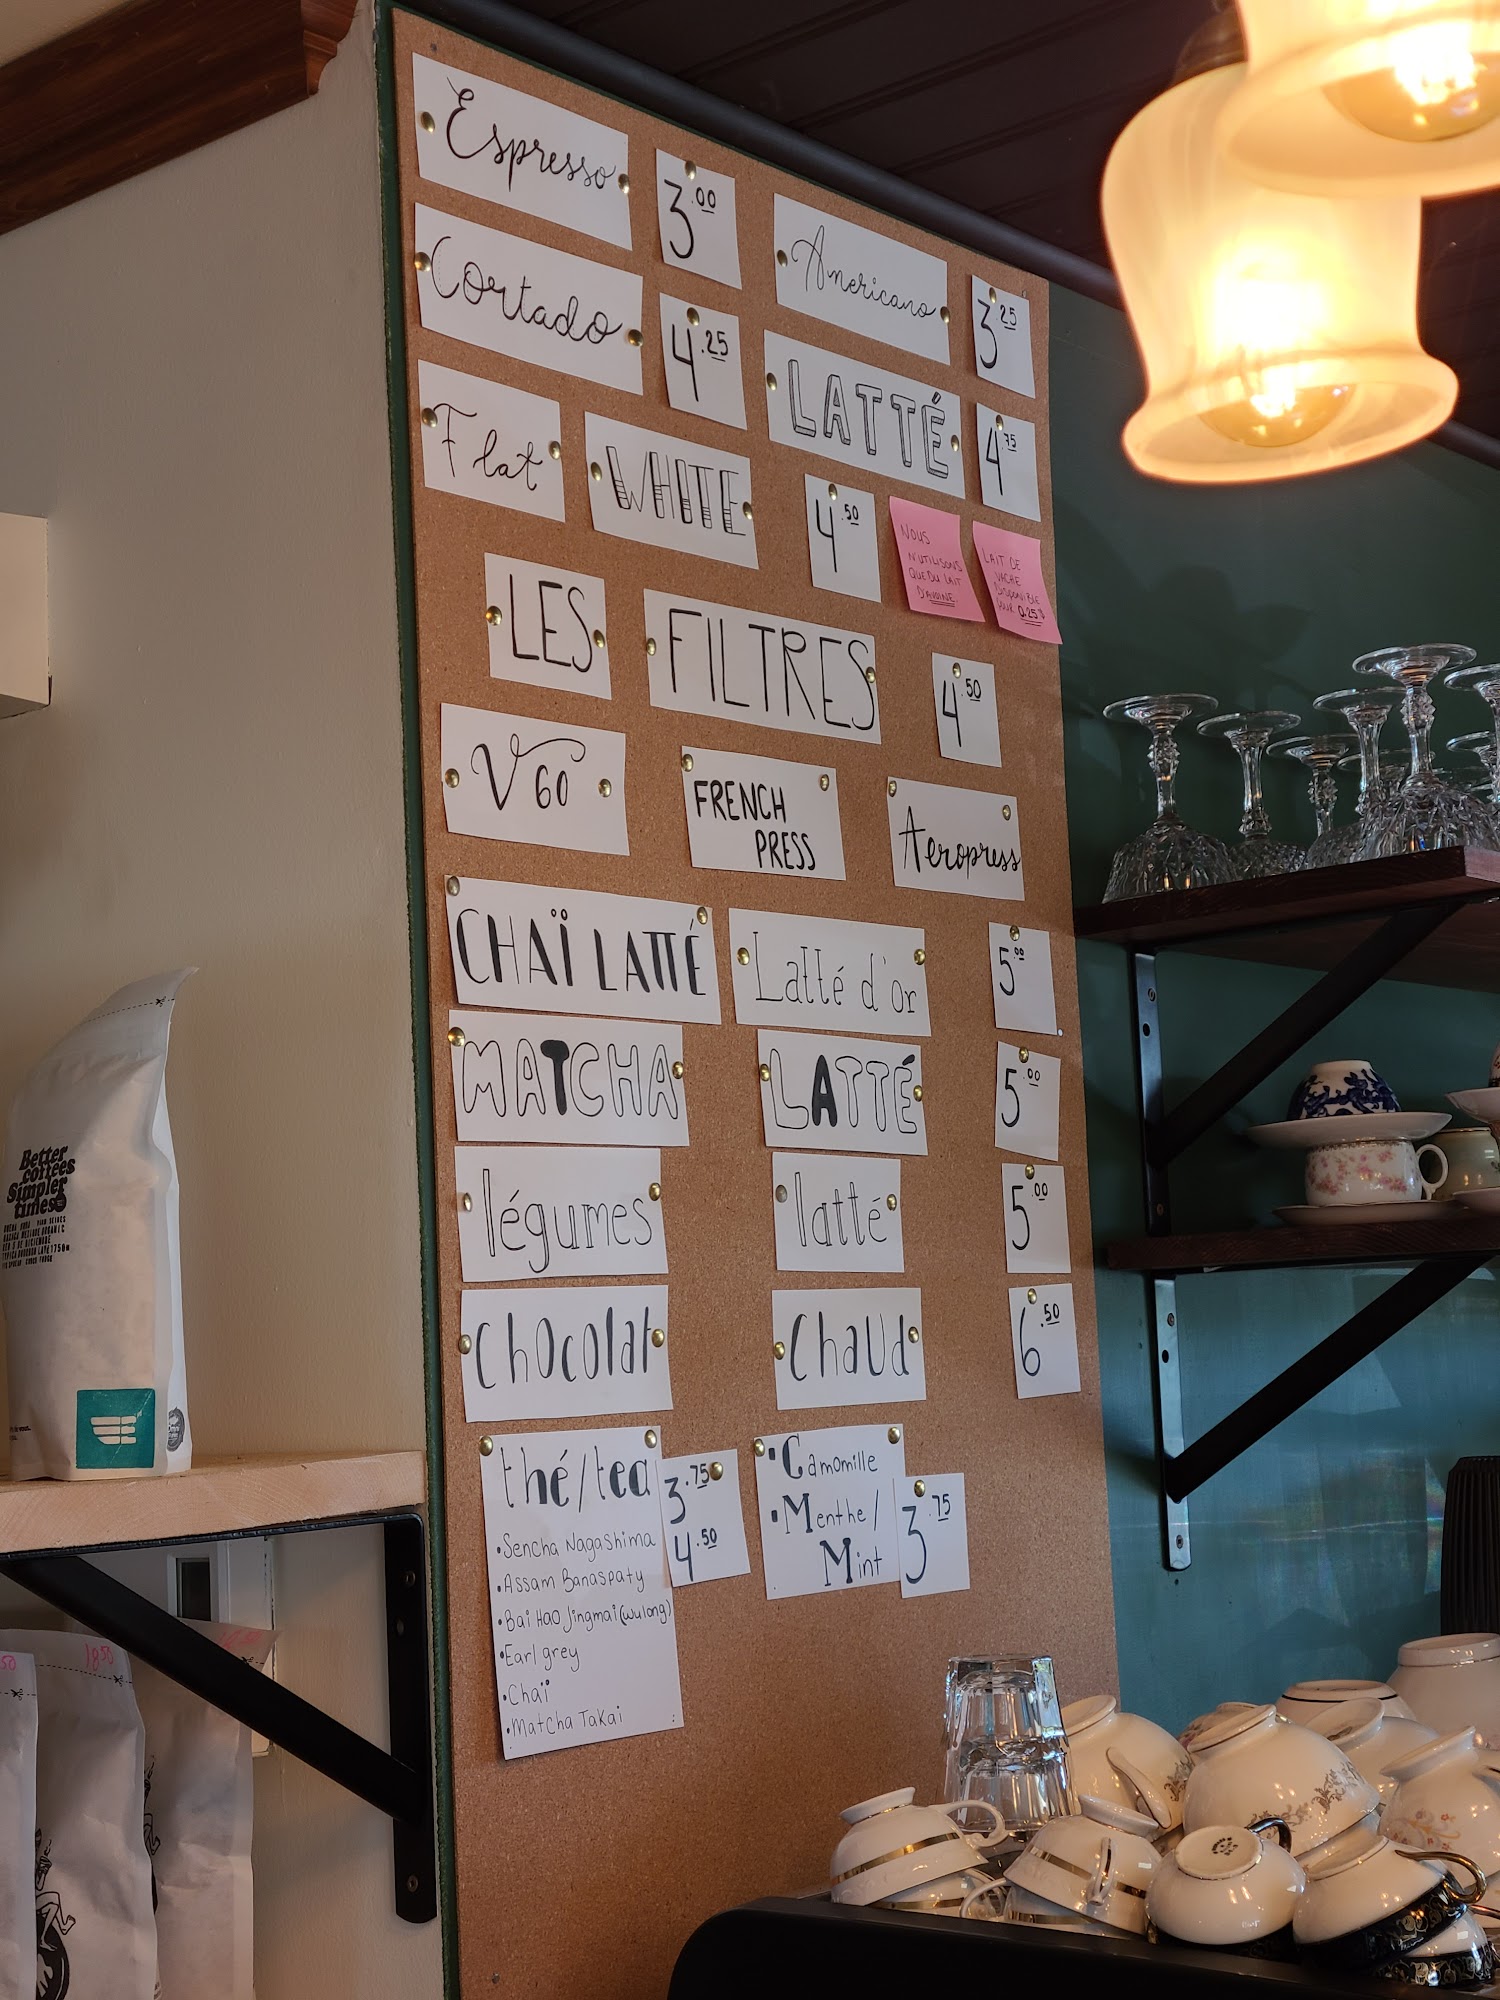 Espresso
3.00
Americano
3.25
Cortado
4.25
LATTÉ
4.75
Flat WHITE
4.50
NOUS
N'UTILISONS
QUE DU LAIT
D'AVOINE.
LAIT DE
VACHE
DISPONIBLE
POUR 0.25$
LES FILTRES
4.50
V60
FRENCH
PRESS
Aeropress
CHAÏ LATTÉ
Latté d'or
5.00
MATCHA LATTÉ
5.00
légumes latté
5.00
Chocolat Chaud
6.50
thé/tea
3.75
4.50
•Sencha Nagashima
•Assam Banaspaty
•Bai Hao Jingmai (wulong)
•Earl grey
•Chaï
•Matcha Takai
•Camomille
•Menthe/
Mint
3.75
Better
coffees
Simpler
times
50
18.50